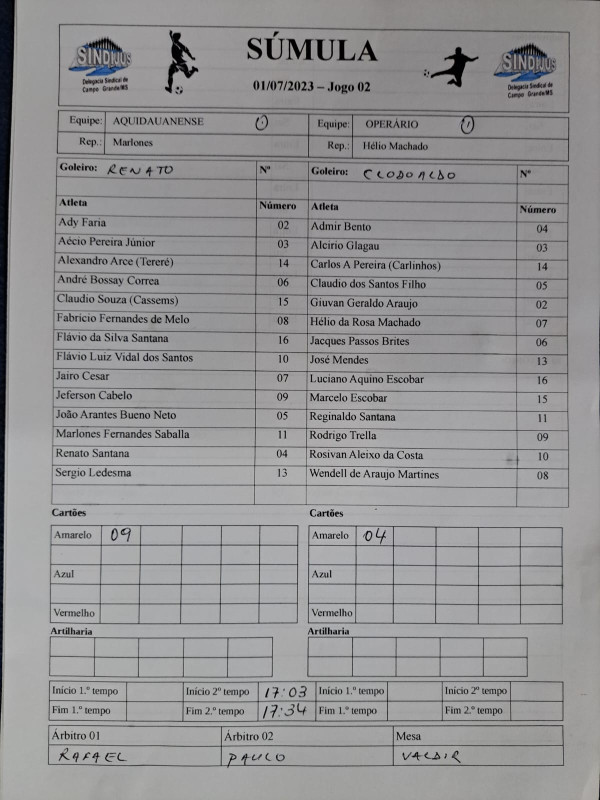 SINDIJUS
Delegacia Sindical de
Campo Grande/MS
SÚMULA
01/07/2023 – Jogo 02
SINDIJUS
Delegacia Sindical de
Campo Grande/MS
Equipe: AQUIDAUANENSE Equipe: OPERÁRIO
Rep.: Marlones Rep.: Hélio Machado
Goleiro: RENATO Nº Goleiro: CLODOALDO Nº
Atleta Número Atleta Número
Ady Faria 02 Admir Bento 04
Aécio Pereira Júnior 03 Alcirio Glagau 03
Alexandro Arce (Tereré) 14 Carlos A Pereira (Carlinhos) 14
André Bossay Correa 06 Claudio dos Santos Filho 05
Claudio Souza (Cassems) 15 Giuvan Geraldo Araujo 02
Fabricio Fernandes de Melo 08 Hélio da Rosa Machado 07
Flávio da Silva Santana 16 Jacques Passos Brites 06
Flávio Luiz Vidal dos Santos 10 José Mendes 13
Jairo Cesar 07 Luciano Aquino Escobar 16
Jeferson Cabelo 09 Marcelo Escobar 15
João Arantes Bueno Neto 05 Reginaldo Santana 11
Marlones Fernandes Saballa 11 Rodrigo Trella 09
Renato Santana 04 Rosivan Aleixo da Costa 10
Sergio Ledesma 13 Wendell de Araujo Martines 08
Cartões Cartões
Amarelo 09 Amarelo 04
Azul Azul
Vermelho Vermelho
Artilharia Artilharia
Início 1.º tempo Início 2º tempo 17:03 Início 1.º tempo Início 2º tempo
Fim 1.º tempo Fim 2.º tempo 17:34 Fim 1.º tempo Fim 2.º tempo
Árbitro 01 Árbitro 02 Mesa
RAFAEL PAULO VALDIR